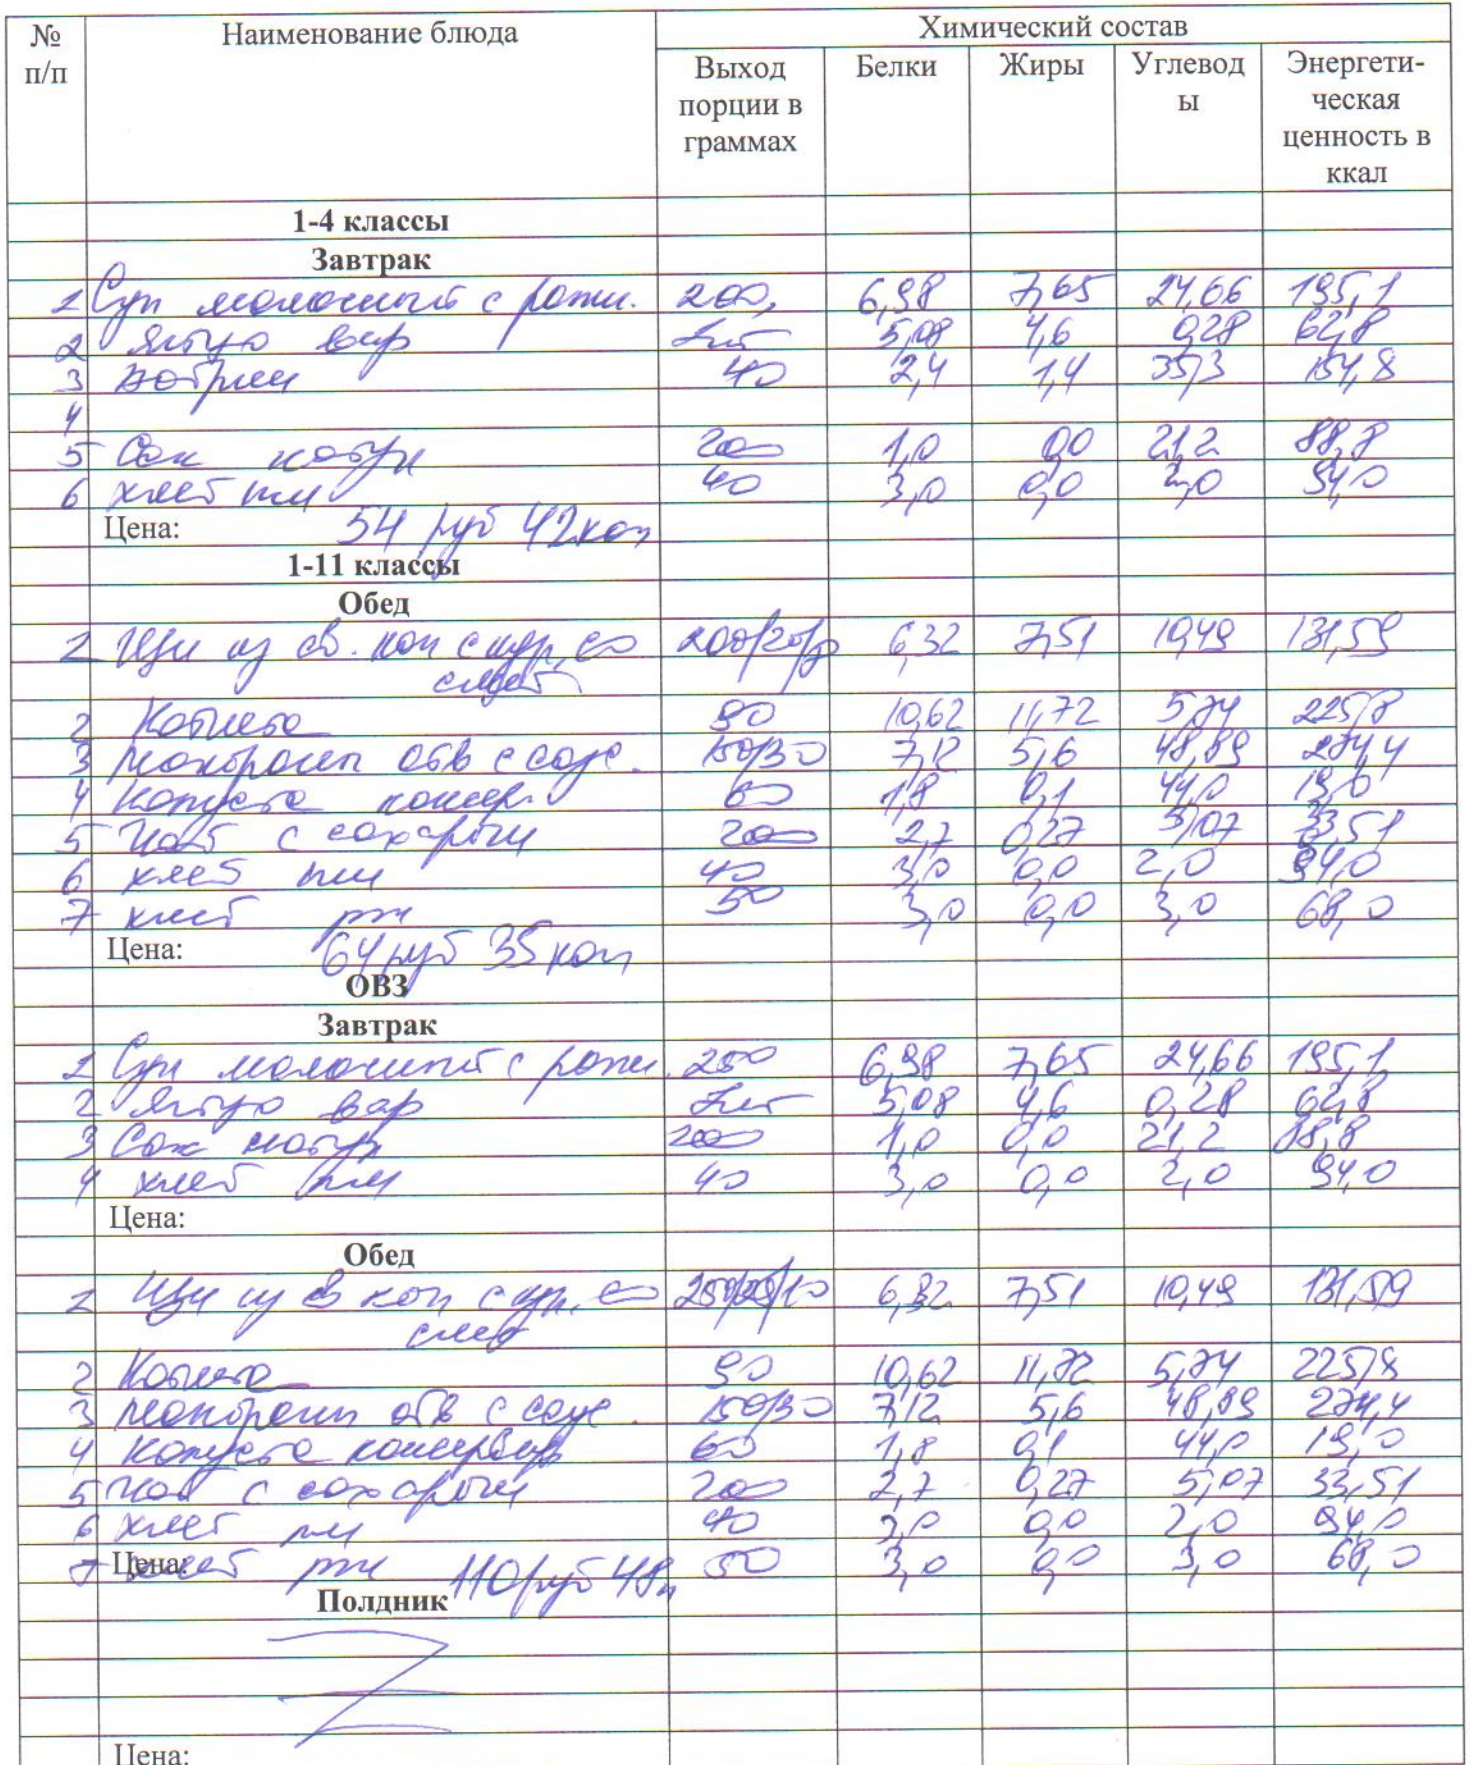 № п/п Наименование блюда Химический состав
Выход порции в граммах Белки Жиры Углевод ы Энергети- ческая ценность в ккал
1-4 классы
Завтрак
1 Суп молочный с рожк. 200, 6,98 7,65 24,66 195,1
2 Яйцо вар 1шт 5,08 4,6 0,28 62,8
3 40 2,4 1,4 35,3 154,8
4
5 Сок натур 200 1,0 0,0 21,2 88,8
6 хлеб пш 40 3,0 0,0 2,0 94,0
Цена: 54 руб 42коп
1-11 классы
Обед
1 Щи из св. кап с кур, со 200/20/ 6,32 7,51 10,49 131,59
смет
2 Котлета 90 10,62 11,72 5,74 225,8
3 Макароны отв с соус. 150/30 7,12 5,6 48,89 274,4
4 Капуста консер. 60 1,8 0,1 44,0 19,0
5 Чай с сахаром 200 2,7 0,27 5,07 33,51
6 хлеб пш 40 3,0 0,0 2,0 94,0
7 хлеб рж 50 3,0 0,0 3,0 68,0
Цена: 64 руб 35 коп
ОВЗ
Завтрак
1 Суп молочный с рожк. 250 6,98 7,65 24,66 195,1
2 Яйцо вар 1шт 5,08 4,6 0,28 62,8
3 Сок натур 200 1,0 0,0 21,2 88,8
4 хлеб пш 40 3,0 0,0 2,0 94,0
Цена:
Обед
1 Щи из св кап с кур, со 250/20/10 6,32 7,51 10,49 131,59
смет
2 Котлета 90 10,62 11,72 5,74 225,8
3 Макароны отв с соус. 150/30 7,12 5,6 48,89 274,4
4 Капуста консервир 60 1,8 0,1 44,0 19,0
5 Чай с сахаром 200 2,7 0,27 5,07 33,51
6 хлеб пш 40 3,0 0,0 2,0 94,0
7 Цена: хлеб рж 110 руб 48к 50 3,0 0,0 3,0 68,0
Полдник
Цена: